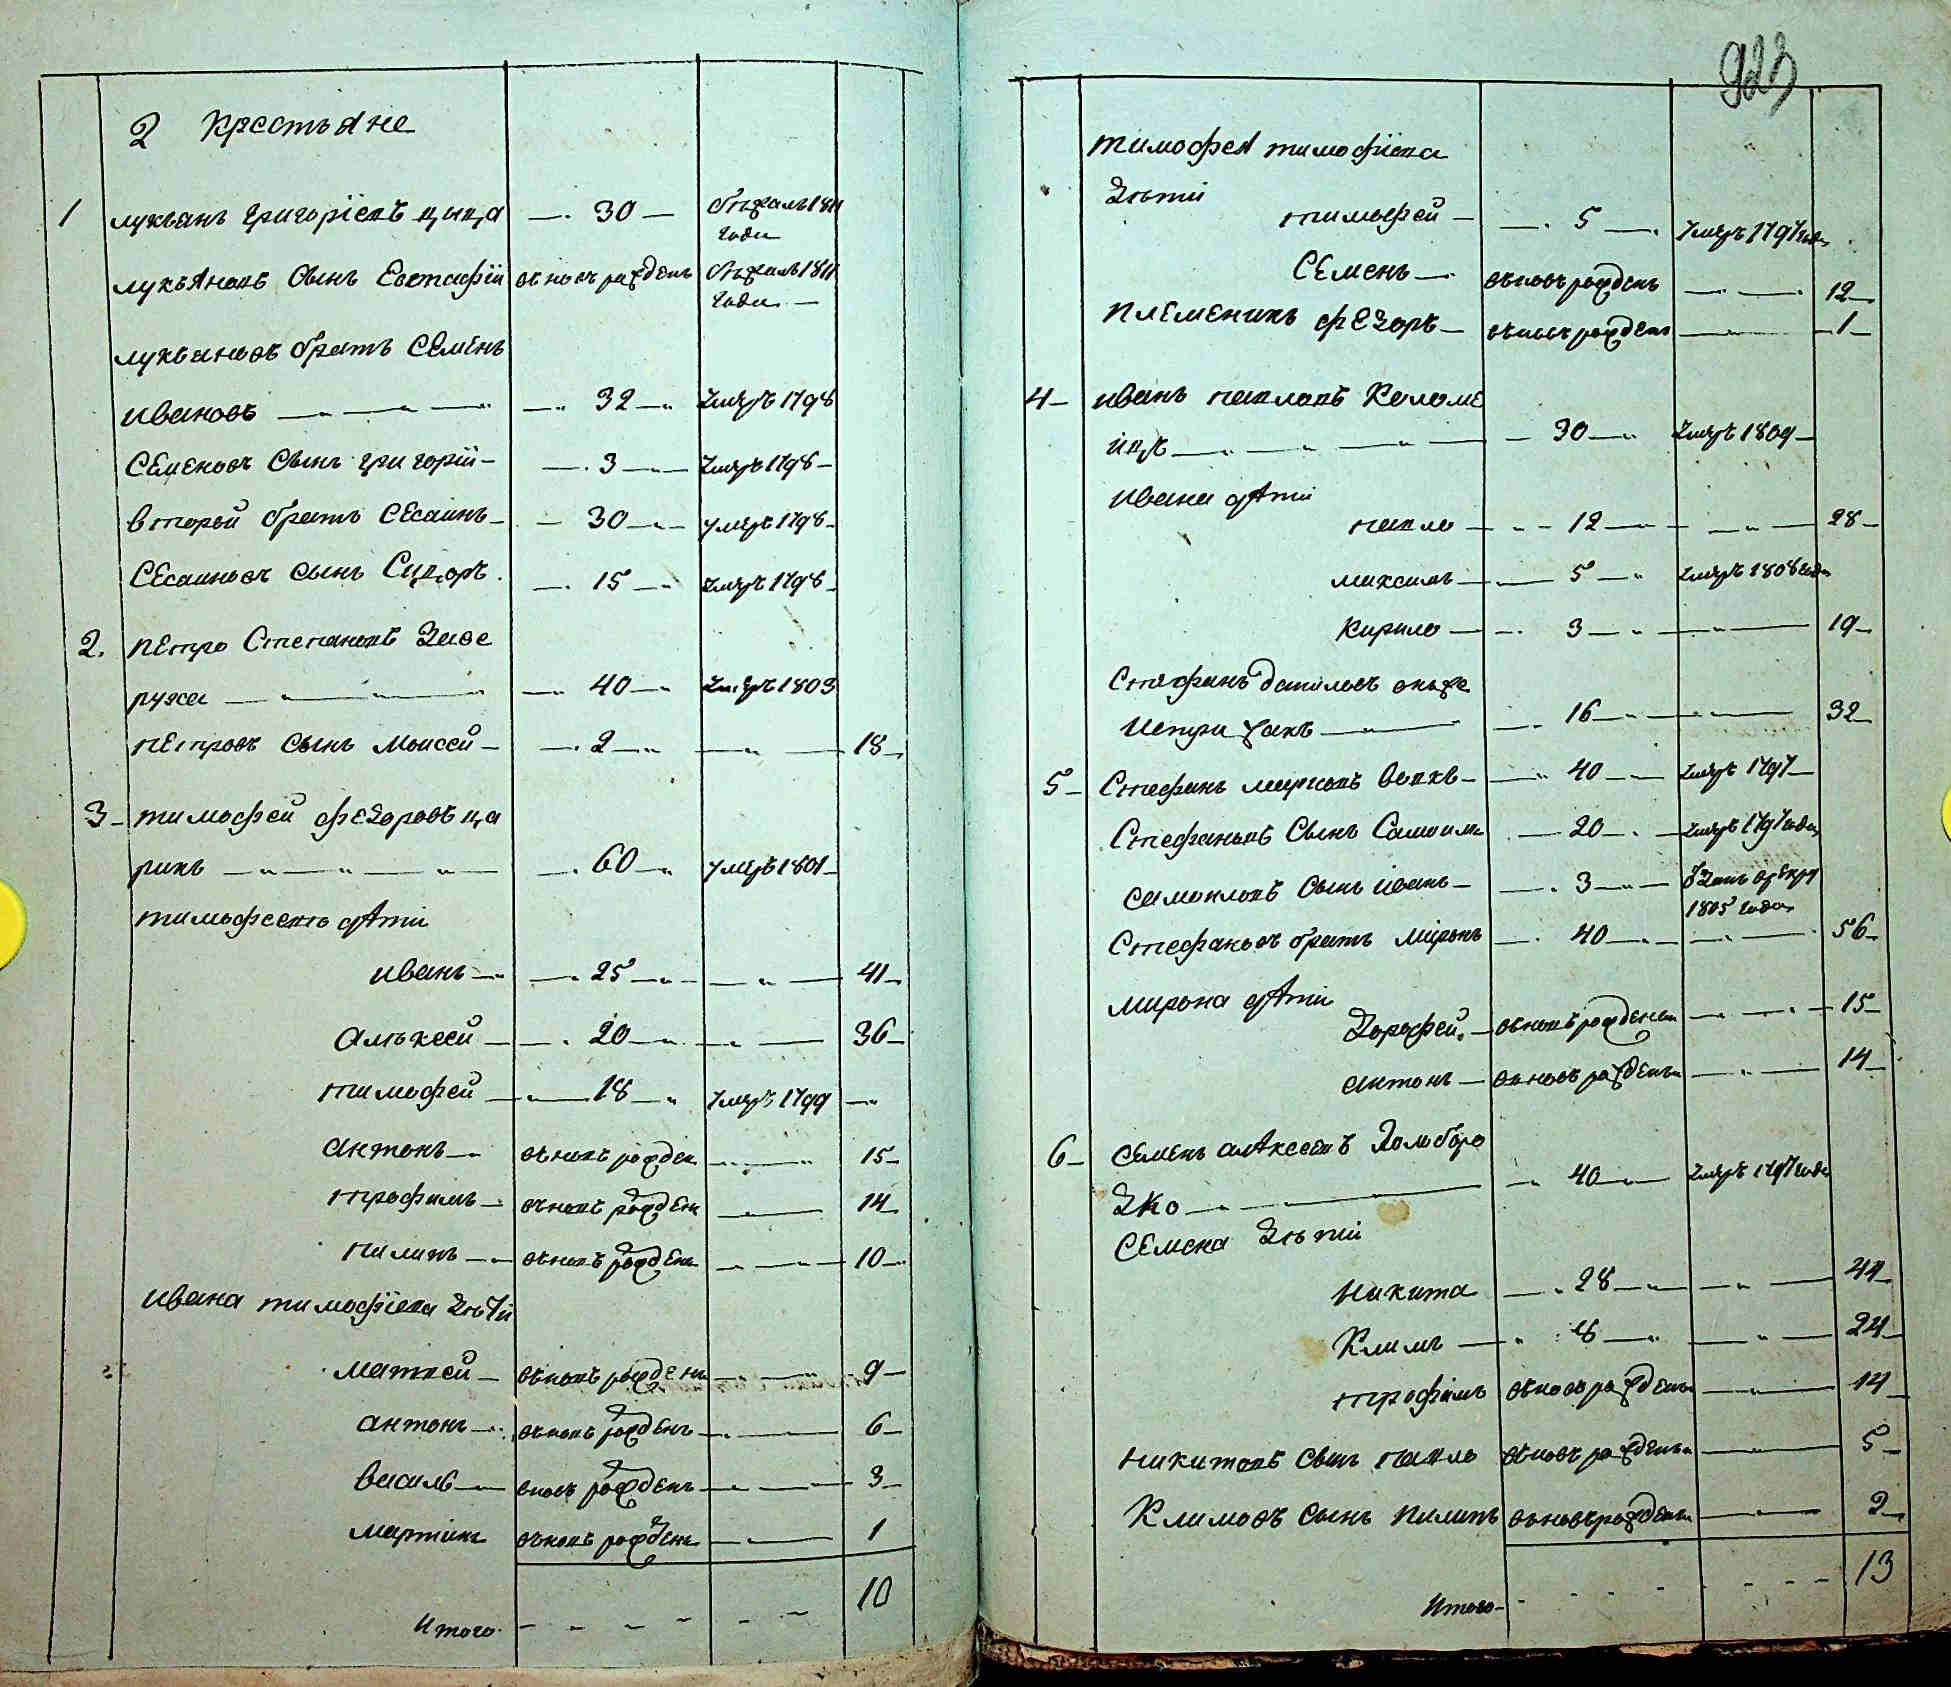 2 Крестьяне
1 лукьянъ григоріевъ цыца 30 1811 года
лукьяновъ сынъ Евстафій вьновъ рожденъ 1811 года
лукьяновъ братъ Семенъ
ивановъ 32 умеръ 1798
Семеновъ сынъ григорій 3 умеръ 1798
второй братъ 30 умеръ 1798
сынъ Сидоръ 15 умеръ 1798
2. Петро Степановъ Заве
руха 40 умеръ 1803
Петровъ сынъ Моисей 2 18
3 тимофей федоровъ ца
рикъ 60 умеръ 1801
тимофеевы дѣти
иванъ 25 41
Алѣксей 20 36
тимофей 18 умеръ 1799
антонъ вьновъ рожден 15
трофимъ вьновъ рожден 14
пилипъ вьновъ рожден 10
ивана тимофіева дѣти
матвей вьновъ рожден 9
антонъ вьновъ рожденъ 6
василь вновъ рожденъ 3
мартинъ вьновъ рожден 1
Итого 10
923
тимофея тимофіева
дѣти
тимофей 5 умеръ 1797 года
Семенъ вьновъ рожденъ 12
племеникъ федоръ вьновъ рожден 1
4 иванъ павловъ Коломѣ
ицъ 30 умеръ 1809
ивана дѣти
павло 12 28
максимъ 5 умеръ 1808 года
Кирило 3 19
Стефанъ даниловъ
16 32
5 Стефанъ мироновъ вовкъ 40 умеръ 1797
Стефановъ Сынъ Самоила 20 умеръ 1797 года
самоиловъ сынъ іванъ 3 1805 года
Стефановъ братъ Миронъ 40 56
мирона дѣти
дорофей вьновъ рожденъ 15
антонъ вьновъ рожденъ 14
6 семенъ алексеевъ Голобро
дко 40 умеръ 1797 года
Семена дѣтій
Никита 28 44
Климъ 8 24
трофимъ вьновъ рожденъ 14
никитовъ сынъ павло вьновъ рожденъ 5
Климовъ сынъ пилипъ вьновъ рожденъ 2
Итого 13